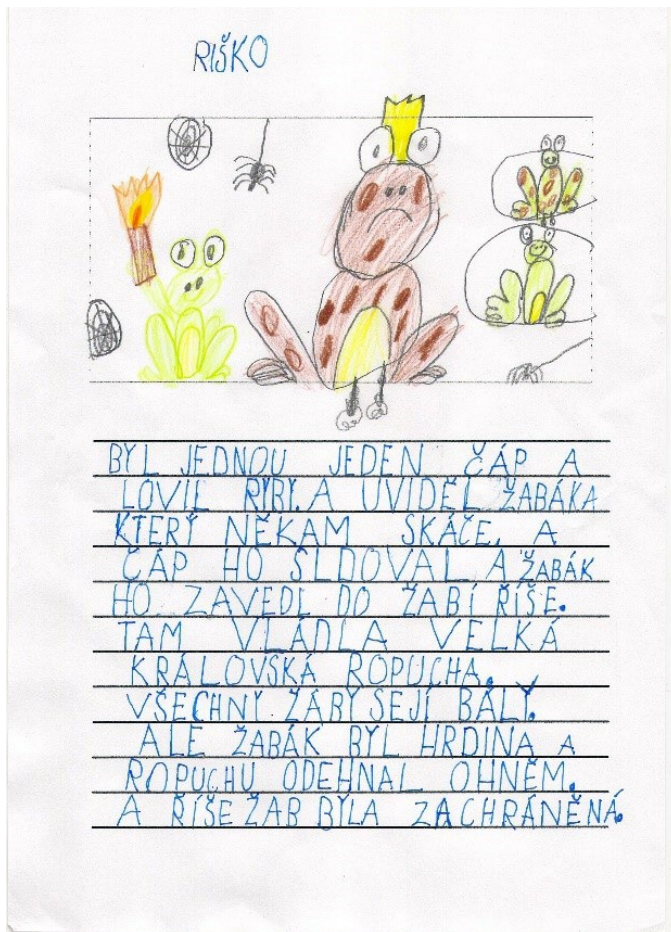 RIŠKO
BYL JEDNOU JEDEN ČÁP A
LOVIL RYBY. A UVIDĚL ŽABÁKA
KTERÝ NĚKAM SKÁČE. A
ČÁP HO SLDOVAL A ŽABÁK
HO ZAVEDL DO ŽABÍ ŘÍŠE.
TAM VLÁDLA VELKÁ
KRÁLOVSKÁ ROPUCHA.
VŠECHNY ŽÁBY SEJÍ BÁLY.
ALE ŽABÁK BYL HRDINA A
ROPUCHU ODEHNAL OHNĚM.
A ŘÍŠE ŽAB BYLA ZACHRÁNĚNÁ.